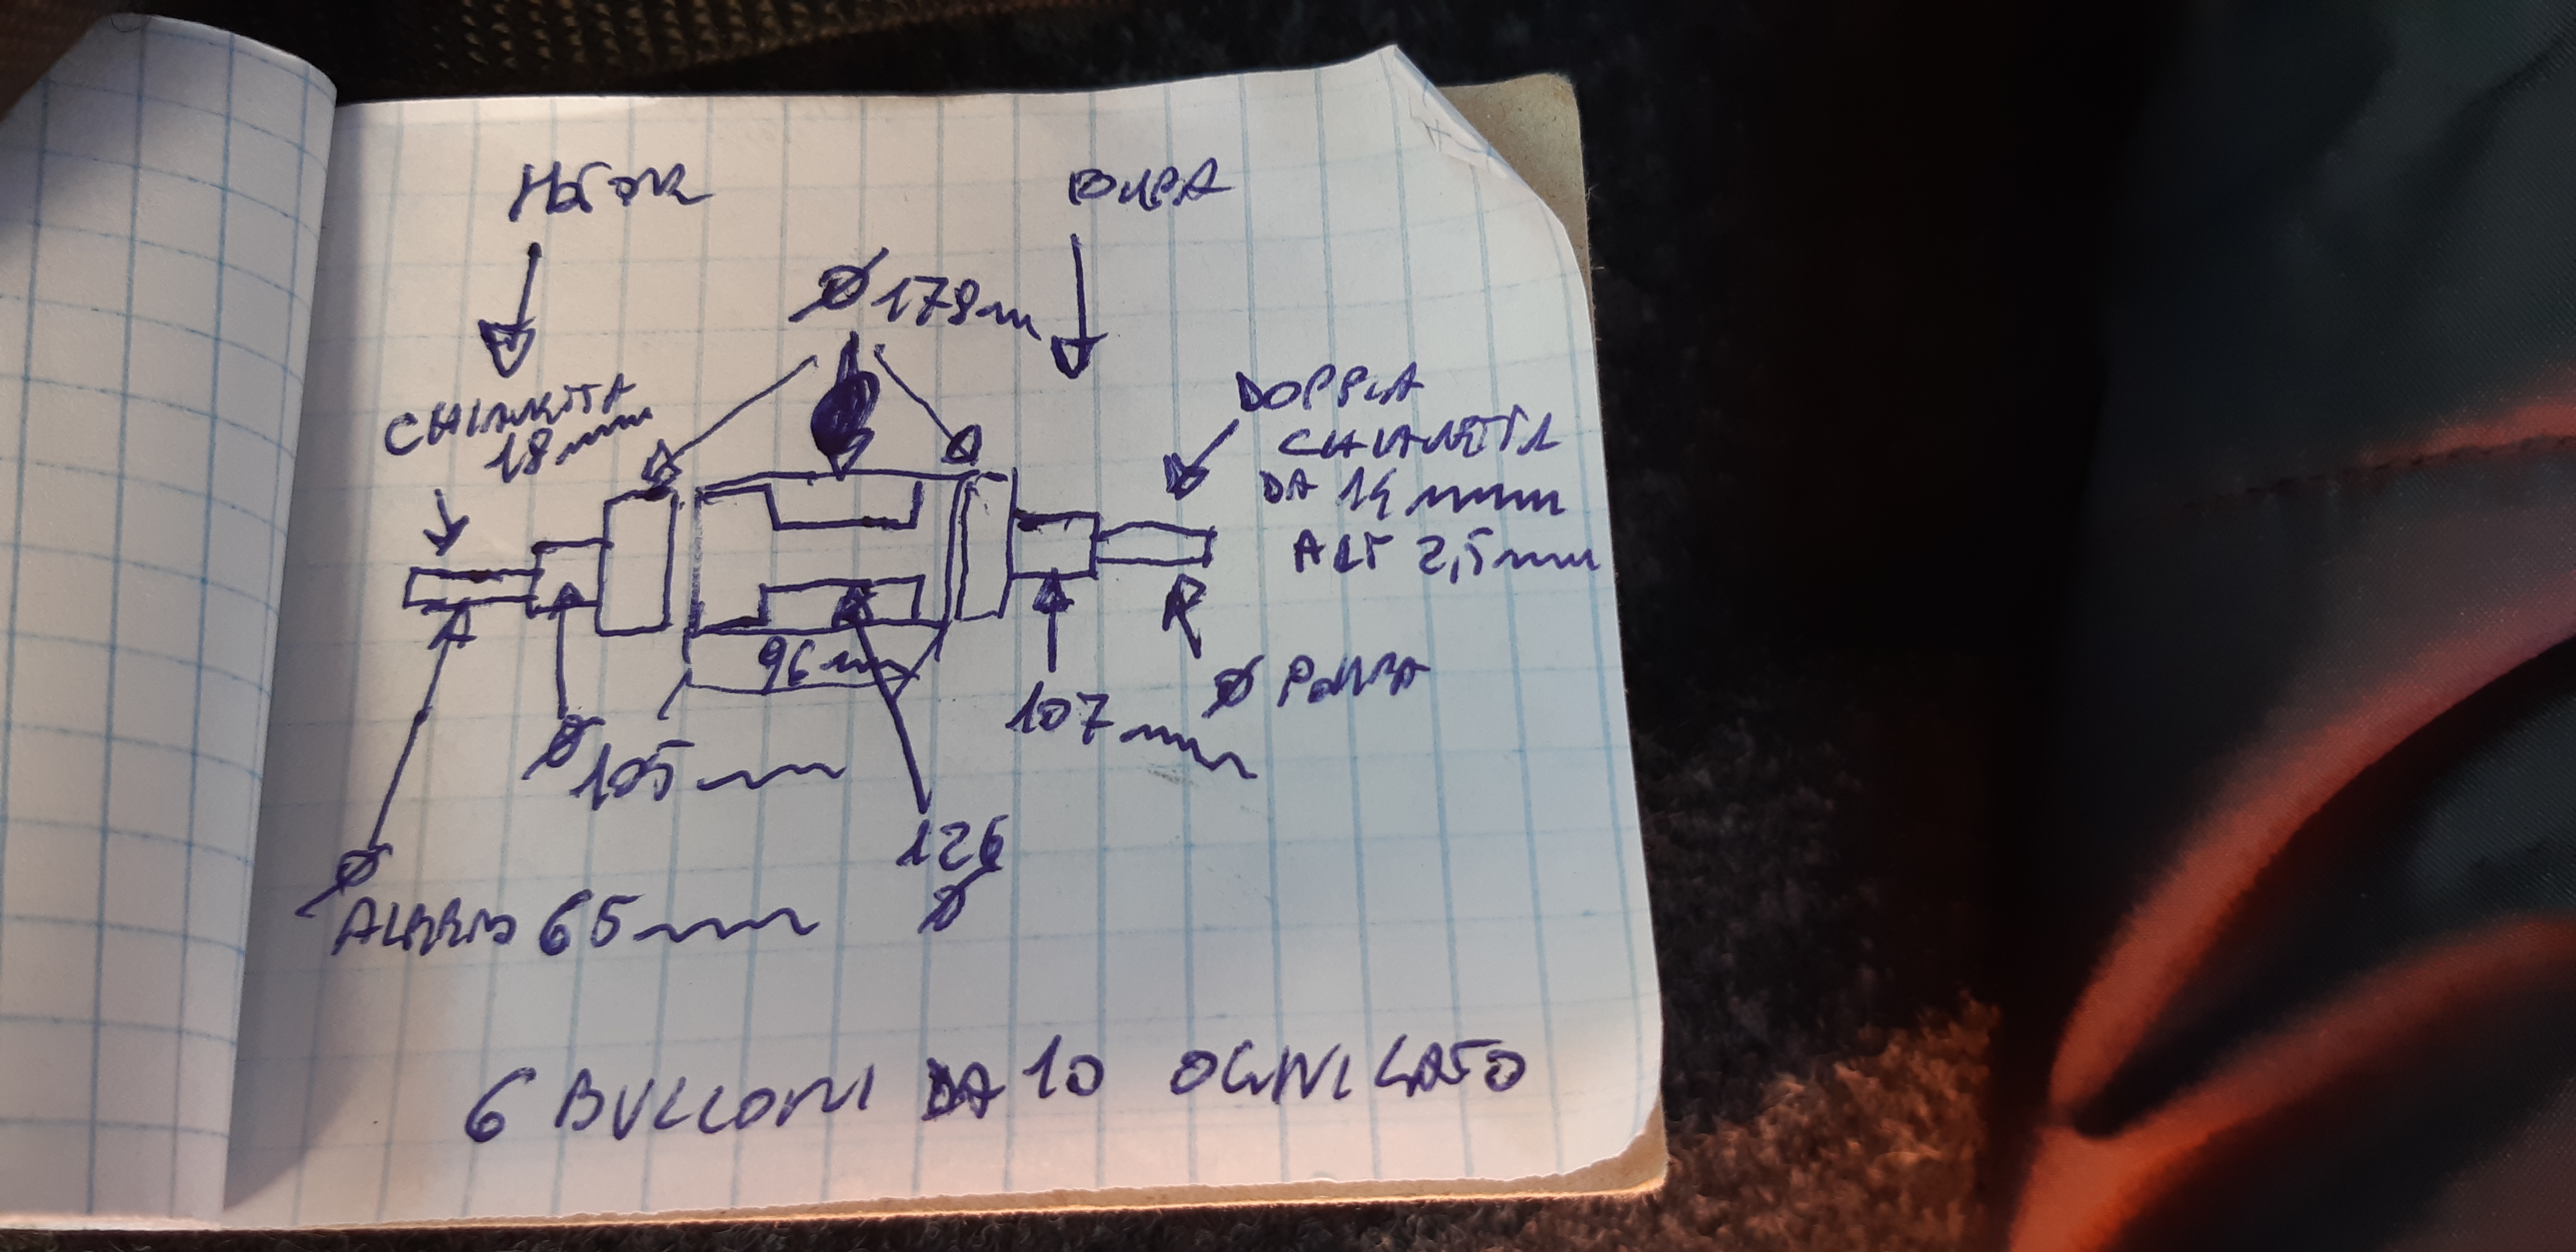 MOTORE
Ø 178 mm
CHIAVETTA
18 mm
DOPPIA
CHIAVETTA
DA 14 mm
ALT 2,5 mm
96 mm
Ø
107 mm
Ø
105 mm
126
Ø
Ø
ALBERO 65 mm
6 BULLONI DA 10